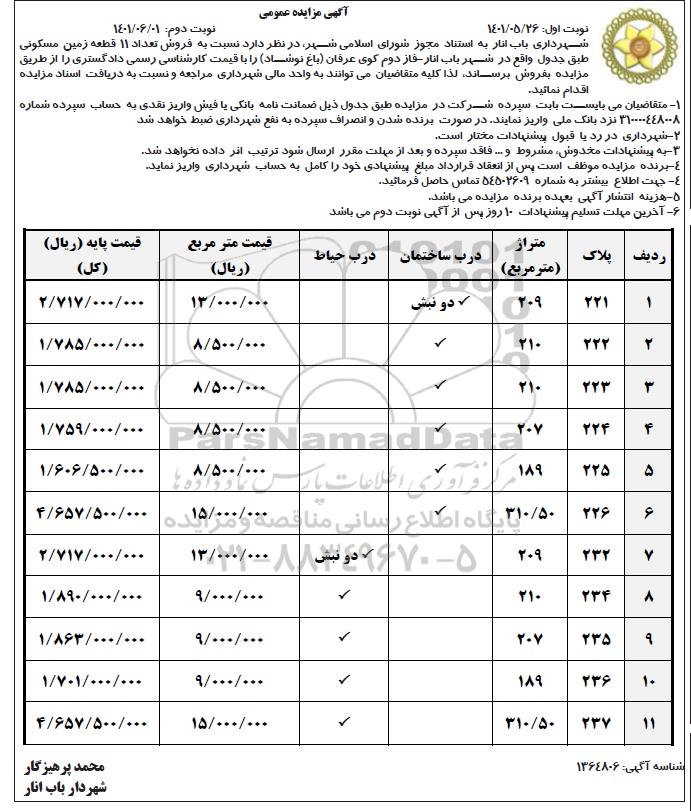 آگهی مزایده عمومی
نوبت اول: ۱۴۰۱/۰۵/۲۶
نوبت دوم: ۱۴۰۱/۰۶/۰۱
شهرداری باب انار به استناد مجوز شورای اسلامی شهر، در نظر دارد نسبت به فروش تعداد ۱۱ قطعه زمین مسکونی
طبق جدول واقع در شهر باب انار-فاز دوم کوی عرفان (باغ نوشاد) را با قیمت کارشناسی رسمی دادگستری را از طریق
مزایده بفروش برساند، لذا کلیه متقاضیان می توانند به واحد مالی شهرداری مراجعه و نسبت به دریافت اسناد مزایده
اقدام نمائید.
۱- متقاضیان می بایست بابت سپرده شرکت در مزایده طبق جدول ذیل ضمانت نامه بانکی یا فیش واریز نقدی به حساب سپرده شماره
۳۱۰۰۰۰۴۴۸۰۰۸ نزد بانک ملی واریز نمایند. در صورت برنده شدن و انصراف سپرده به نفع شهرداری ضبط خواهد شد
۲-شهرداری در رد یا قبول پیشنهادات مختار است.
۳-به پیشنهادات مخدوش، مشروط و ... فاقد سپرده و بعد از مهلت مقرر ارسال شود ترتیب اثر داده نخواهد شد.
۴-برنده مزایده موظف است پس از انعقاد قرارداد مبلغ پیشنهادی خود را کامل به حساب شهرداری واریز نماید.
۴- جهت اطلاع بیشتر به شماره ۵۴۵۰۲۶۰۹ تماس حاصل فرمائید.
۵-هزینه انتشار آگهی بعهده برنده مزایده می باشد.
۶- آخرین مهلت تسلیم پیشنهادات ۱۰ روز پس از آگهی نوبت دوم می باشد
ردیف پلاک متراژ (مترمربع) درب ساختمان درب حیاط قیمت متر مربع (ریال) قیمت پایه (ریال) (کل)
۱ ۲۲۱ ۲۰۹ ✓ دو نبش ۱۳/۰۰۰/۰۰۰ ۲/۷۱۷/۰۰۰/۰۰۰
۲ ۲۲۲ ۲۱۰ ✓ ۸/۵۰۰/۰۰۰ ۱/۷۸۵/۰۰۰/۰۰۰
۳ ۲۲۳ ۲۱۰ ✓ ۸/۵۰۰/۰۰۰ ۱/۷۸۵/۰۰۰/۰۰۰
۴ ۲۲۴ ۲۰۷ ✓ ۸/۵۰۰/۰۰۰ ۱/۷۵۹/۰۰۰/۰۰۰
۵ ۲۲۵ ۱۸۹ ✓ ۸/۵۰۰/۰۰۰ ۱/۶۰۶/۵۰۰/۰۰۰
۶ ۲۲۶ ۳۱۰/۵۰ ✓ ۱۵/۰۰۰/۰۰۰ ۴/۶۵۷/۵۰۰/۰۰۰
۷ ۲۳۲ ۲۰۹ ✓ دو نبش ۱۳/۰۰۰/۰۰۰ ۲/۷۱۷/۰۰۰/۰۰۰
۸ ۲۳۴ ۲۱۰ ✓ ۹/۰۰۰/۰۰۰ ۱/۸۹۰/۰۰۰/۰۰۰
۹ ۲۳۵ ۲۰۷ ✓ ۹/۰۰۰/۰۰۰ ۱/۸۶۳/۰۰۰/۰۰۰
۱۰ ۲۳۶ ۱۸۹ ✓ ۹/۰۰۰/۰۰۰ ۱/۷۰۱/۰۰۰/۰۰۰
۱۱ ۲۳۷ ۳۱۰/۵۰ ✓ ۱۵/۰۰۰/۰۰۰ ۴/۶۵۷/۵۰۰/۰۰۰
ParsNamadData
مرکز فرآوری اطلاعات پارس نماد داده ها
پایگاه اطلاع رسانی مناقصه و مزایده
۰۲۱-۸۸۳۴۹۶۷۰-۵
شناسه آگهی: ۱۳۶۴۸۰۶
محمد پرهیزگار
شهردار باب انار